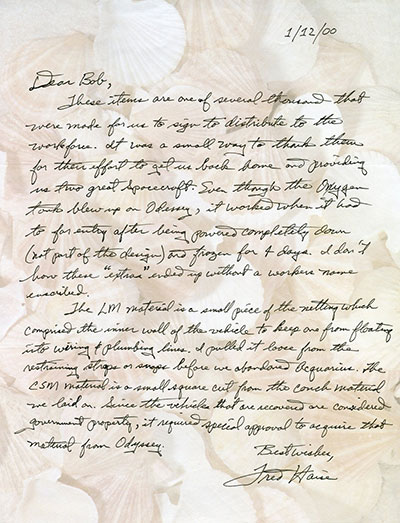 1/12/00
Dear Bob,
These items are one of several thousand that
were made for us to sign to distribute to the
workforce. It was a small way to thank them
for their effort to get us back home and providing
us two great spacecraft. Even though the Oxygen
tank blew up on Odessey, it worked when it had
to for entry after being powered completely down
(not part of the design) and frozen for 4 days. I don't
know these "extras" ended up without a workers name
inscribed.
The LM material is a small piece of the netting which
comprised the inner wall of the vehicle to keep one from floating
into wiring & plumbing lines. I pulled it loose from the
restraining straps or snaps before we abandoned Aquarius. The
CSM material is a small square cut from the couch material
we laid on. Since the vehicles that are recovered are considered
government property, it required special approval to acquire that
material from Odyssey.
Best wishes,
Fred Haise